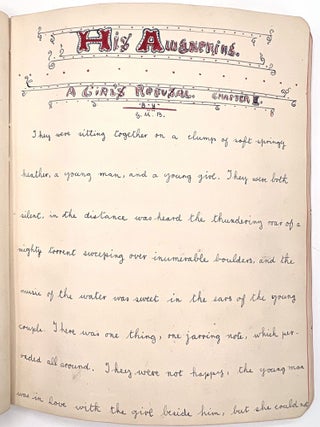 His Awakening.
A Girl's Refusal. Chapter I.
"BY"
G. M. B.
They were sitting together on a clump of soft springy
heather, a young man, and a young girl. They were both
silent, in the distance was heard the thundering roar of a
mighty torrent sweeping over inumerable boulders, and the
music of the water was sweet in the ears of the young
couple. There was one thing, one jarring note, which per-
vaded all around. They were not happy, the young man
was in love with the girl beside him, but she could not